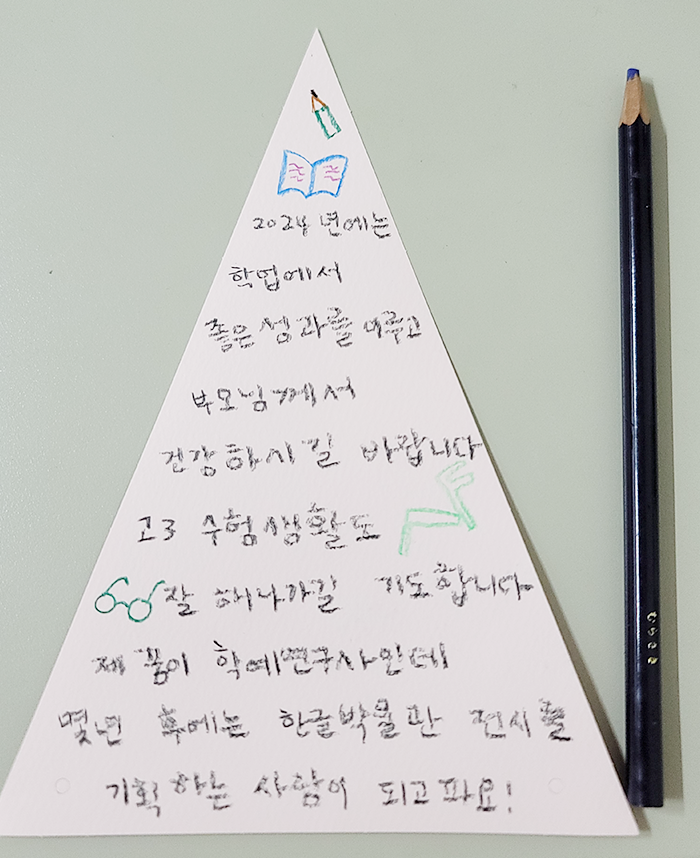 2024년에는
학업에서
좋은성과를 이루고
부모님께서
건강하시길 바랍니다
고3 수험생활도
잘 해나가길 기도합니다
제 꿈이 학예연구사인데
몇년 후에는 한글박물관 전시를
기획하는 사람이 되고파요!